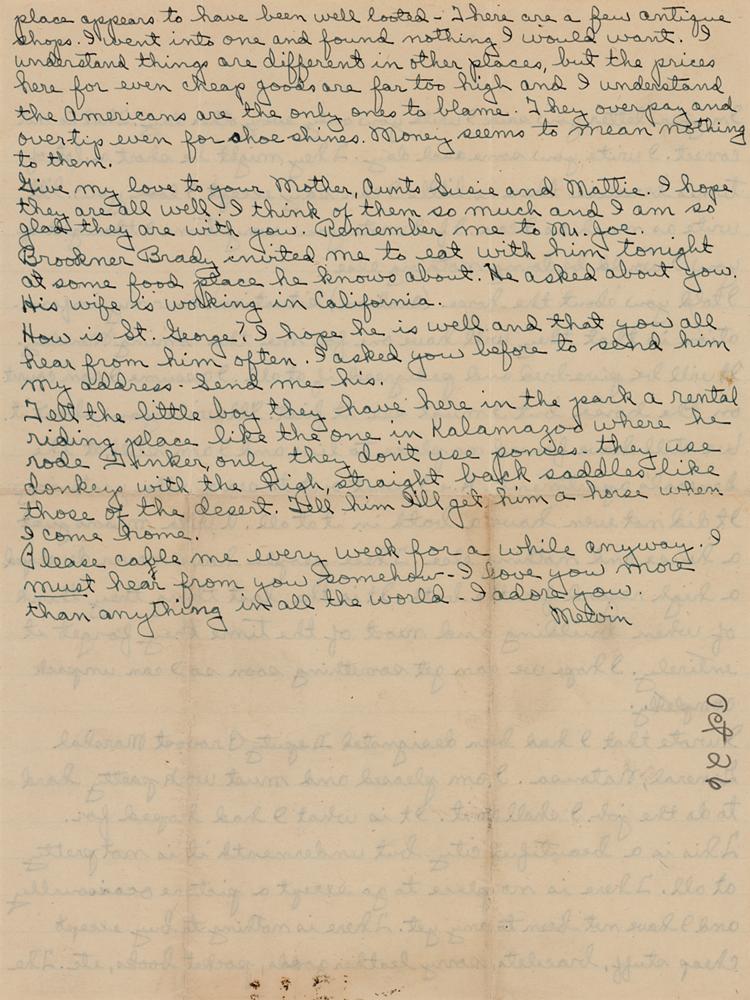 place appears to have been well looted - There are a few antique
shops. I went into one and found nothing I would want. I
understand things are different in other places, but the prices
here for even cheap goods are far too high and I understand
the Americans are the only ones to blame. They overpay and
overtip even for shoe shines. Money seems to mean nothing
to them.
Give my love to your Mother, Aunts Susie and Mattie. I hope
they are all well. I think of them so much and I am so
glad they are with you. Remember me to Mr. Joe.
Brookner Brady invited me to eat with him tonight
at some food place he knows about. He asked about you.
His wife is working in California.
How is St. George? I hope he is well and that you all
hear from him often. I asked you before to send him
my address - Send me his.
Tell the little boy they have here in the park a rental
riding place like the one in Kalamazoo where he
rode Tinker, only they dont use ponies - they use
donkeys with the high, straight back saddles like
those of the desert. Tell him Ill get him a horse when
I come home.
Please cable me every week for a while anyway. I
must hear from you somehow - I love you more
than anything in all the world - I adore you.
Melvin
Oct 26